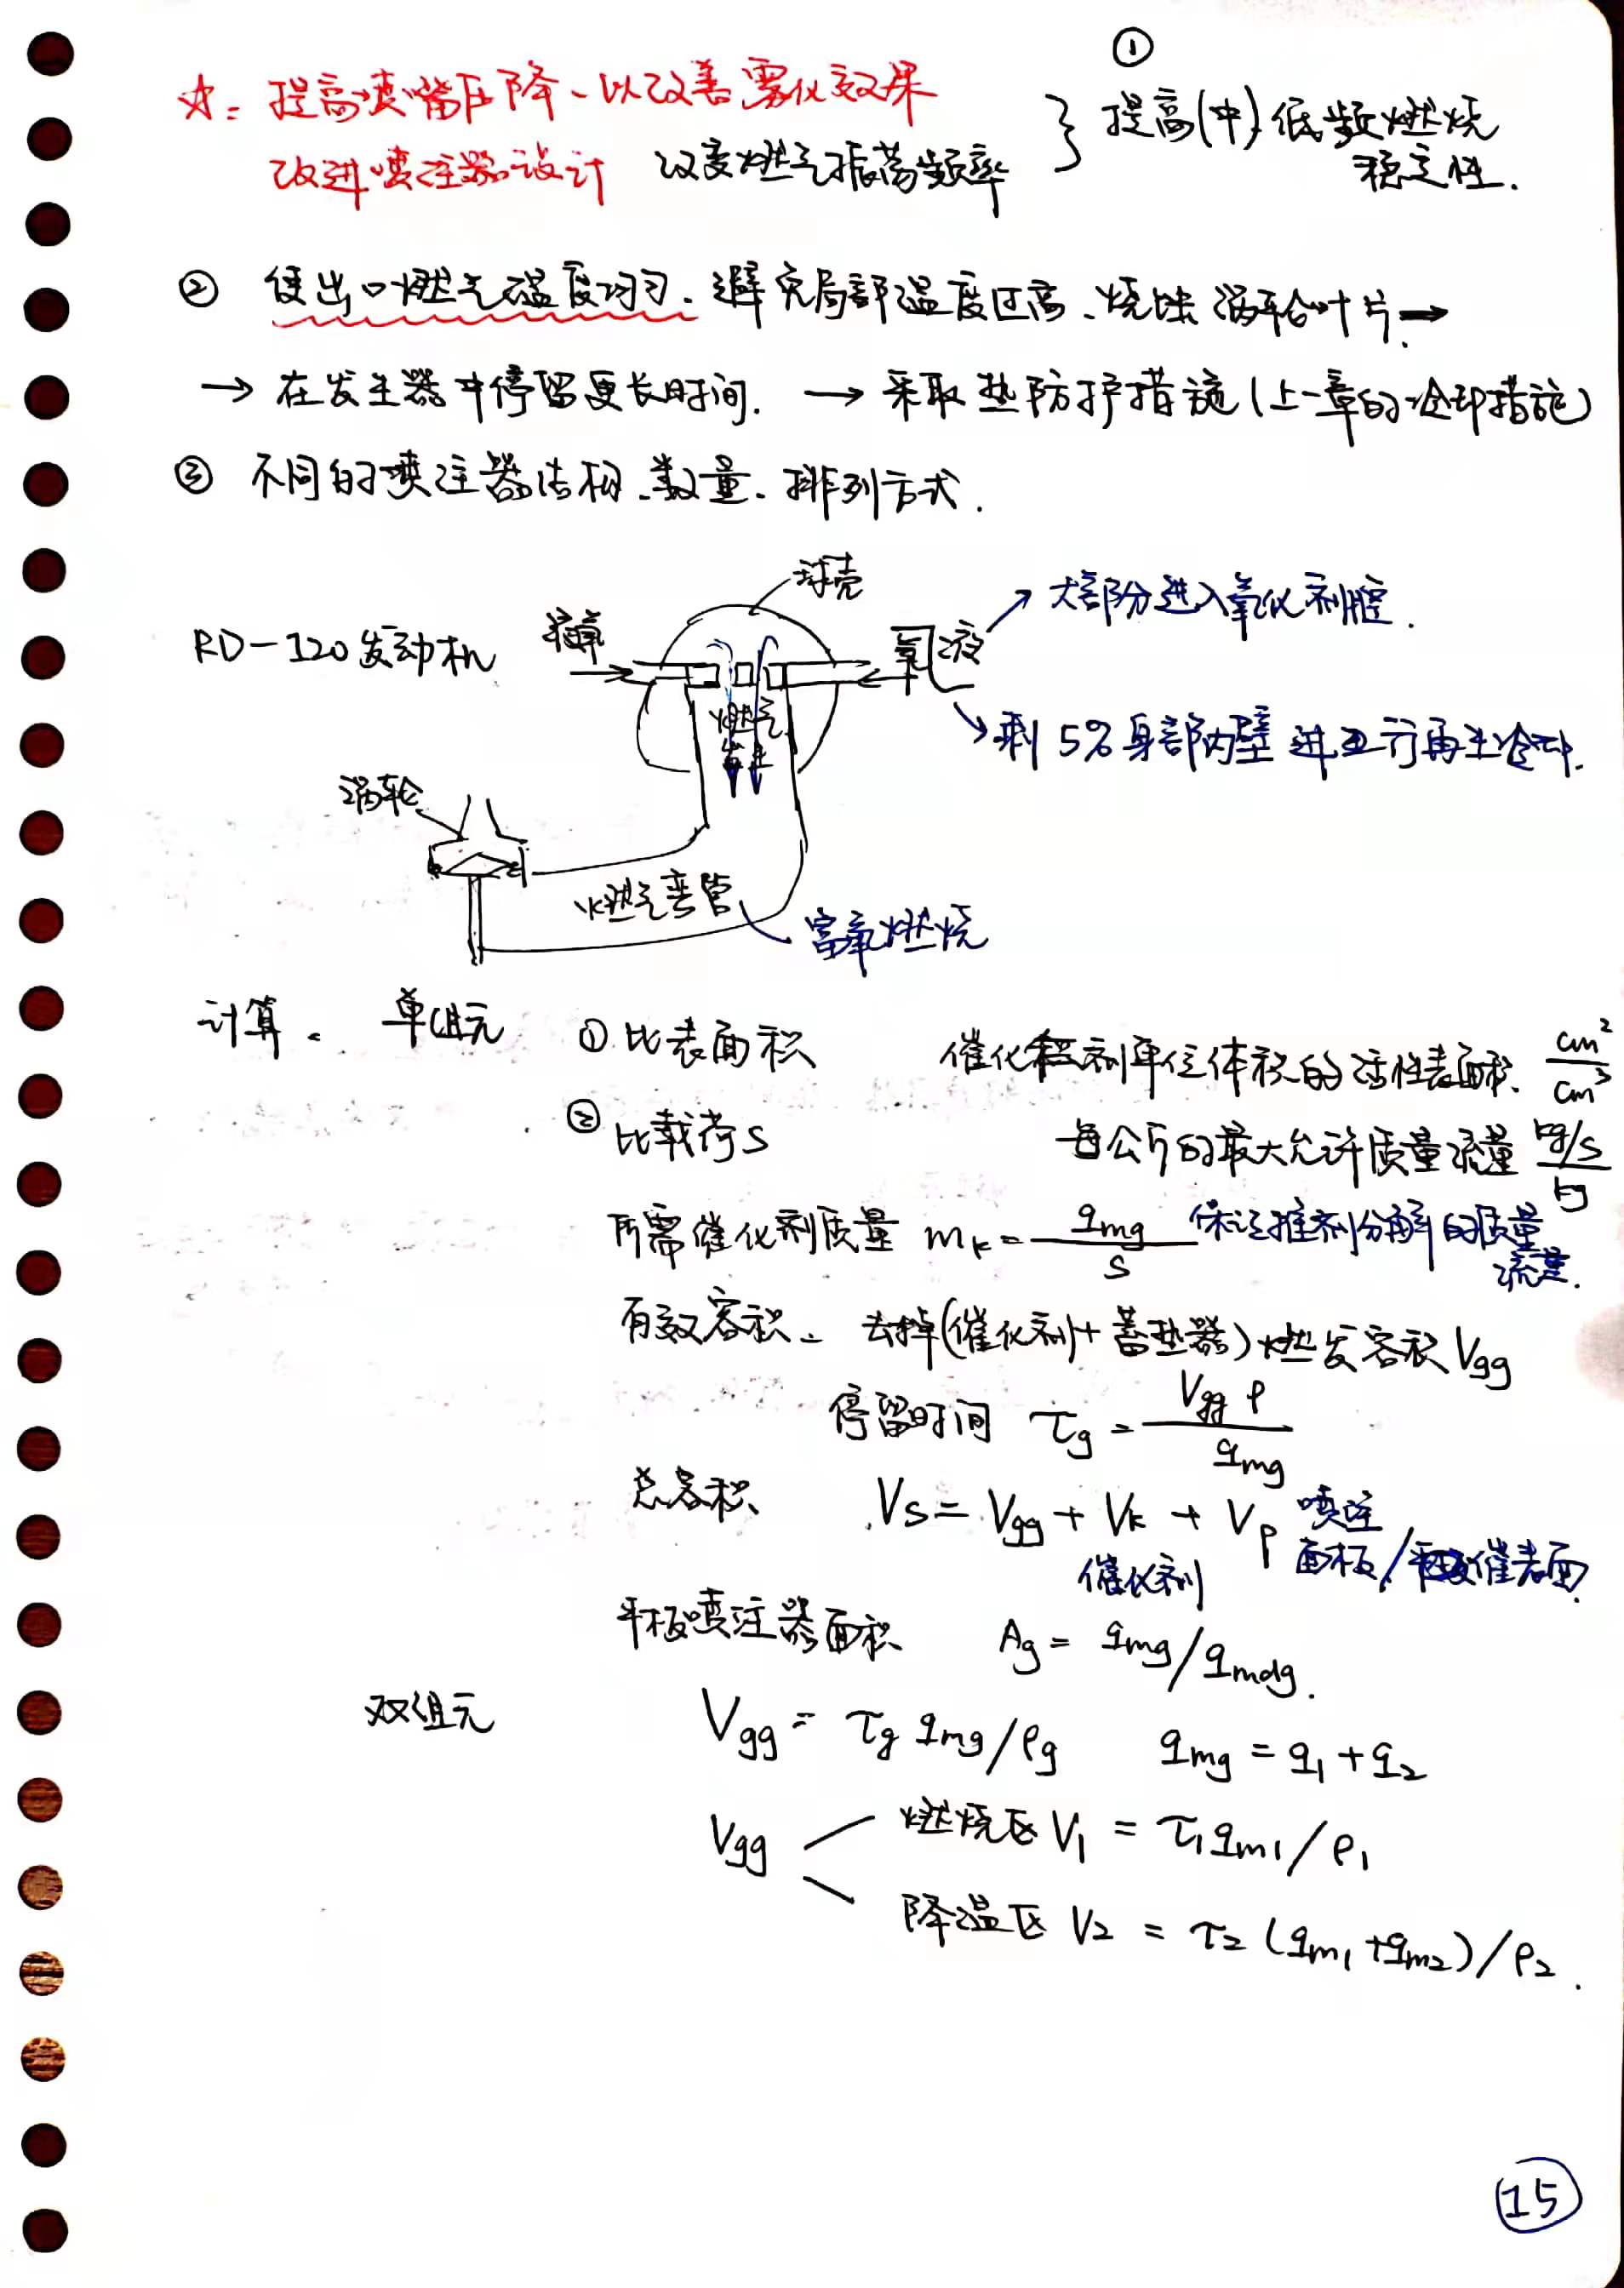 ①
☆: 提高喷嘴压降、以改善雾化效果
改进喷注器设计 改变燃气振荡频率 } 提高(中)低频燃烧
稳定性.
② 使出口燃气温度均匀. 避免局部温度过高、烧蚀涡轮叶片. →
→ 在发生器中停留更长时间. → 采取热防护措施(上一章的冷却措施)
③ 不同的喷注器结构、数量、排列方式.
球壳
RD-120发动机
氧液
→ 大部分进入氧化剂腔.
→ 剩5%身部内壁进行再生冷却.
燃气
涡轮
燃气弯管
富氧燃烧
计算. 单组元 ① 比表面积 催化剂单位体积的活性表面积. cm²/cm³
② 比载荷S 每公斤的最大允许质量流量 kg/s/kg
所需催化剂质量 mk = qmg/S 保证推剂分解的质量
流量.
有效容积. 去掉(催化剂+蓄热器)燃发容积 Vgg
停留时间 τg = Vgg ρ/qmg
总容积 Vs = Vgg + Vk + Vp 喷注
催化剂 面板/催表面
平板喷注器面积 Ag = qmg/qmdg.
双组元 Vgg = τg qmg/ρg qmg = q1 + q2
Vgg 燃烧区 V1 = τ1qm1/ρ1
降温区 V2 = τ2(qm1+qm2)/ρ2.
15